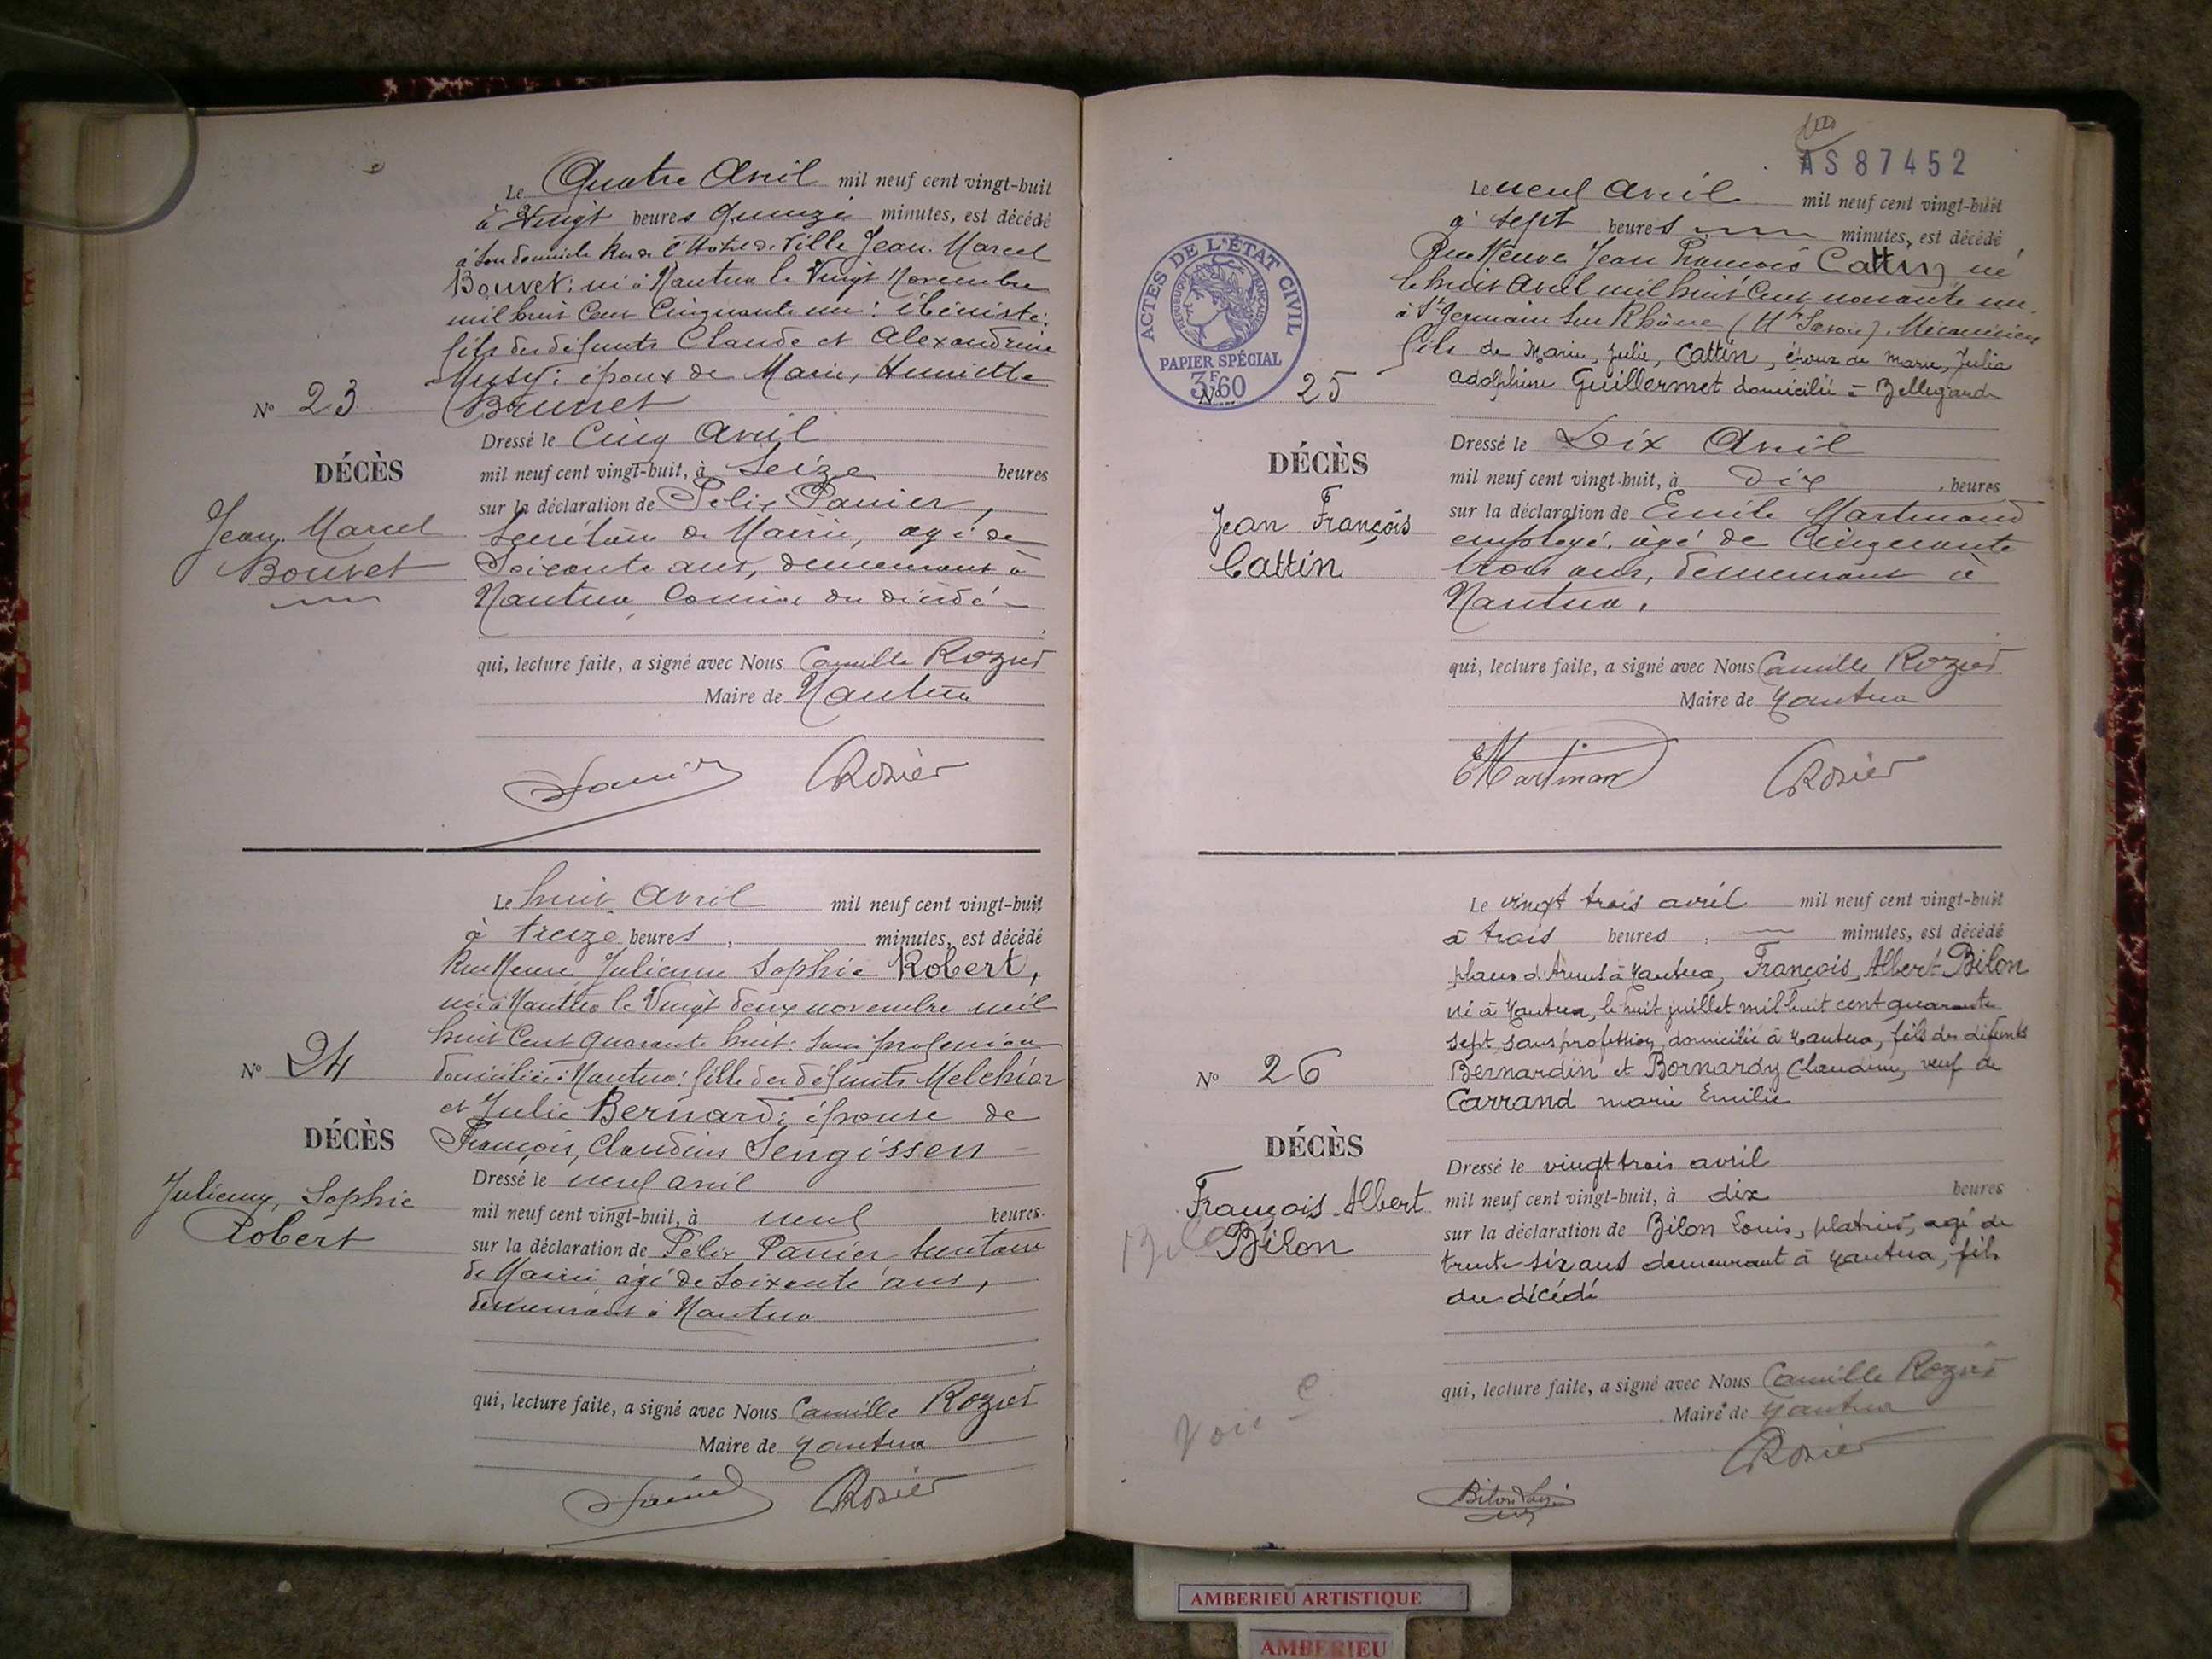 Le Quatre Avril mil neuf cent vingt-huit
à Vingt heures Quinze minutes, est décédé
à son domicile Rue de l'Hôtel de Ville Jean Marcel
Bouvet: né à Nantua le Vingt Novembre
mil huit Cent Cinquante un: ébéniste:
fils des défunts Claude et Alexandrine
Musy: époux de Marie, Henriette
Brunet
N° 23
DÉCÈS
Jean Marcel
Bouvet
Dressé le Cinq Avril
mil neuf cent vingt-huit, à Seize heures
sur la déclaration de Félix Panier,
Secrétaire de Mairie, agé de
Soixante ans, demeurant à
Nantua, du décédé
qui, lecture faite, a signé avec Nous Camille Rozier
Maire de Nantua
Panier Rozier
Le huit Avril mil neuf cent vingt-huit
à treize heures, minutes, est décédé
Rue Neuve Julienne Sophie Robert,
née à Nantua le Vingt deux novembre mil
huit Cent quarante huit: sans profession
domiciliée à Nantua: fille des défunts Melchior
et Julie Bernard: épouse de
François, Claudius Sengissen
N° 24
DÉCÈS
Julienne, Sophie
Robert
Dressé le neuf avril
mil neuf cent vingt-huit, à neuf heures
sur la déclaration de Félix Panier secrétaire
de Mairie, agé de soixante ans,
demeurant à Nantua
qui, lecture faite, a signé avec Nous Camille Rozier
Maire de Nantua
Panier Rozier
AS 87452
Le neuf avril mil neuf cent vingt-huit
à sept heures minutes, est décédé
Rue Neuve Jean François Cattin né
le huit Avril mil huit Cent nonante un
à St Germain sur Rhône (Hte Savoie). Mécanicien
fils de Marie, Julie, Cattin, époux de Marie, Julia
Adolphine Guillermet domicilié à Bellegarde
ACTES DE L'ÉTAT CIVIL
RÉPUBLIQUE FRANÇAISE
PAPIER SPÉCIAL
3F60
N° 25
DÉCÈS
Jean François
Cattin
Dressé le Dix Avril
mil neuf cent vingt-huit, à dix heures
sur la déclaration de Emile Martinand
employé, agé de Cinquante
trois ans, demeurant à
Nantua.
qui, lecture faite, a signé avec Nous Camille Rozier
Maire de Nantua
EMartinand Rozier
Le vingt trois avril mil neuf cent vingt-huit
à trois heures minutes, est décédé
place d'Armes à Nantua, François, Albert Bilon
né à Nantua, le huit juillet mil huit cent quarante
sept, sans profession, domicilié à Nantua, fils des défunts
Bernardin et Bornardy Claudine, veuf de
Carrand marie Emilie
N° 26
DÉCÈS
François Albert
Bilon
Dressé le vingt trois avril
mil neuf cent vingt-huit, à dix heures
sur la déclaration de Bilon Louis, platrier, agé de
trente six ans demeurant à Nantua, fils
du décédé
qui, lecture faite, a signé avec Nous Camille Rozier
Maire de Nantua
Rozier
Bilon Louis
AMBERIEU ARTISTIQUE
AMBERIEU